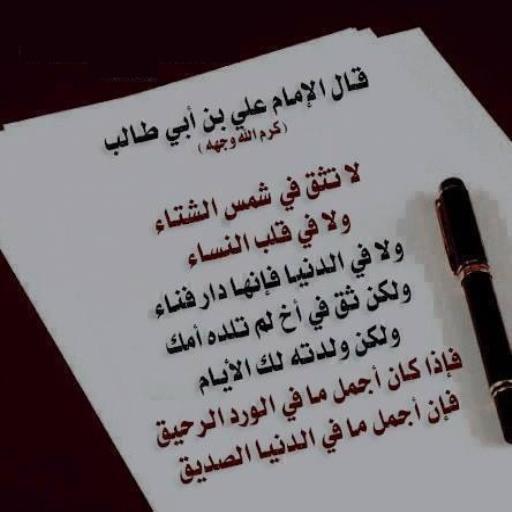 قال الإمام علي بن أبي طالب
(كرم الله وجهه)
لا تثق في شمس الشتاء
ولا في قلب النساء
ولا في الدنيا فإنها دار فناء
ولكن ثق في أخ لم تلده أمك
ولكن ولدته لك الأيام
فإذا كان أجمل ما في الورد الرحيق
فإن أجمل ما في الدنيا الصديق